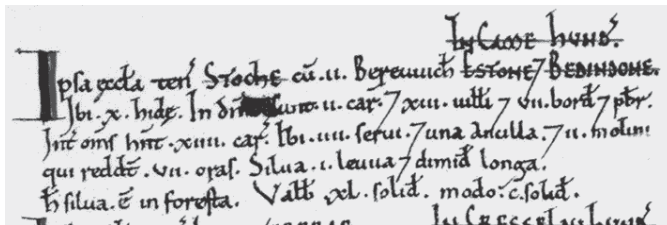 In Came hund'.
Ipsa eccl'a ten' Stoche cū .ii. Bereuuich Estone ⁊ Bedindone.
Ibi .x. hidę. In dn̄io sunt .ii. car' ⁊ xiii. uill'i ⁊ vii. bord' ⁊ pbr'.
Int' om̄s hn̄t .xiiii. car'. Ibi .iiii. serui ⁊ una ancilla ⁊ .ii. molini
qui reddt̄ .vii. oras. Silua .i. leuua ⁊ dimid' longa.
H' silua .ē in foresta. Valb' .xl. solid'. modo .c. solid'.
In Cresselau hund'.